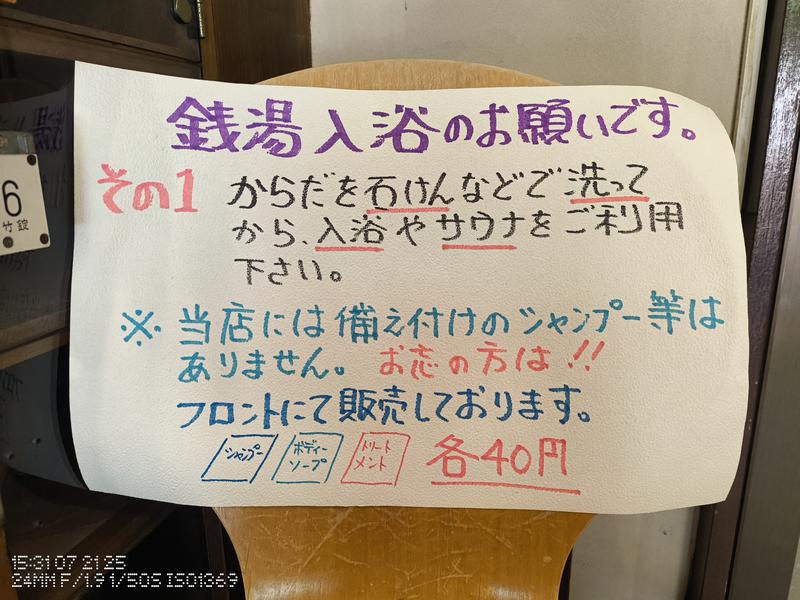 銭湯入浴のお願いです。
その1 からだを石けんなどで洗って
から、入浴やサウナをご利用
下さい。
※ 当店には備え付けのシャンプー等は
ありません。お忘の方は!!
フロントにて販売しております。
シャンプー ボディーソープ トリートメント 各40円
6
竹錠
15:31 07 21 25
24MM F/1.9 1/50S ISO1369